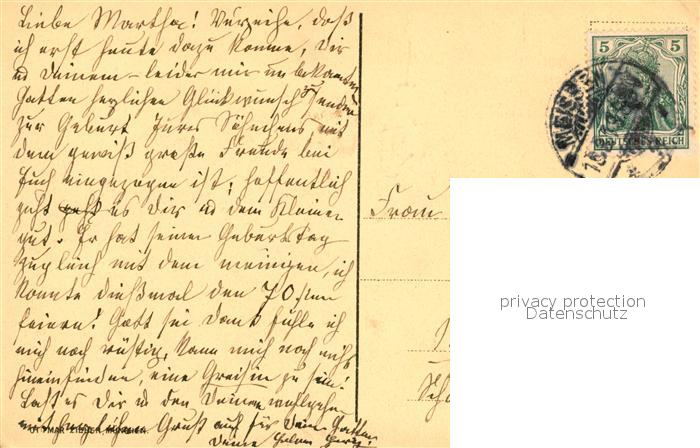 Liebe Martha! Verzeihe, daß
ich erst heute dazu komme, Dir
u Deinem – leider mir unbekannten
Gatten herzlichen Glückwunsch z. senden
zur Geburt Jures Söhnchens, mit
dem gewiß große Freude bei
Euch eingezogen ist; hoffentlich
geht es Dir u dem Kleinen
gut. Er hat seinen Geburtstag
zugleich mit dem meinigen, ich
konnte dießmal den 70sten
feiern! Gott sei Dank fühle ich
mich noch rüstig, kann mich noch nicht
hineinfinden, eine Greisin zu sein!
Laß es Dir u den Deinen wohlgehn
Gruß auch für Dein Gatten
Deine
OTTMAR ZIEHER, MÜNCHEN
5 5
DEUTSCHES REICH
MEISSEN
Frau
privacy protection
Datenschutz